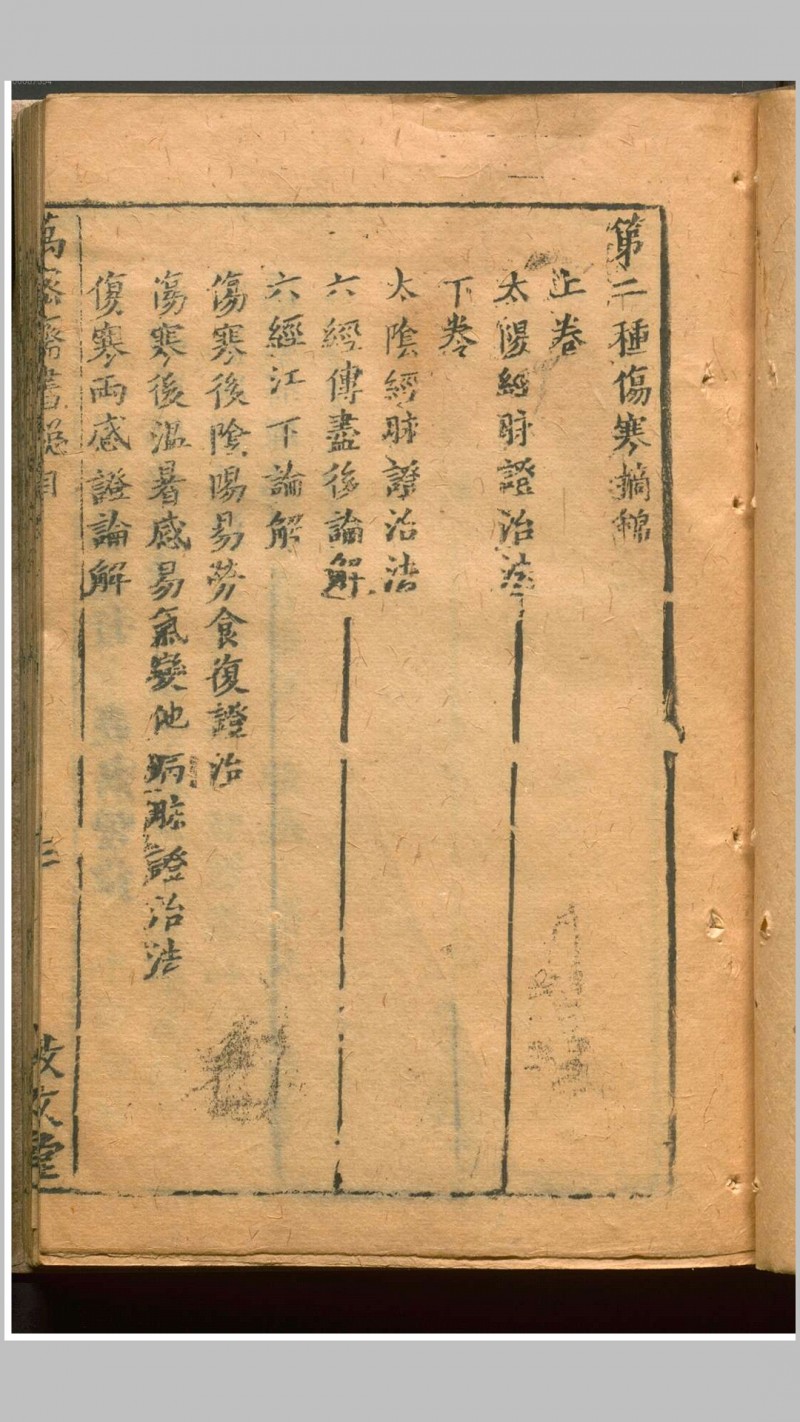 第二種傷寒摘錦
上卷
太陽經脉證治法
下卷
太陰經脉證治法
六經傳盡後論解
六經汗下論解
傷寒後陰陽易勞食復證治
傷寒後溫暑感易氣變他病脉證治法
傷寒兩感證論解
萬密齋書總目
三
敬文堂